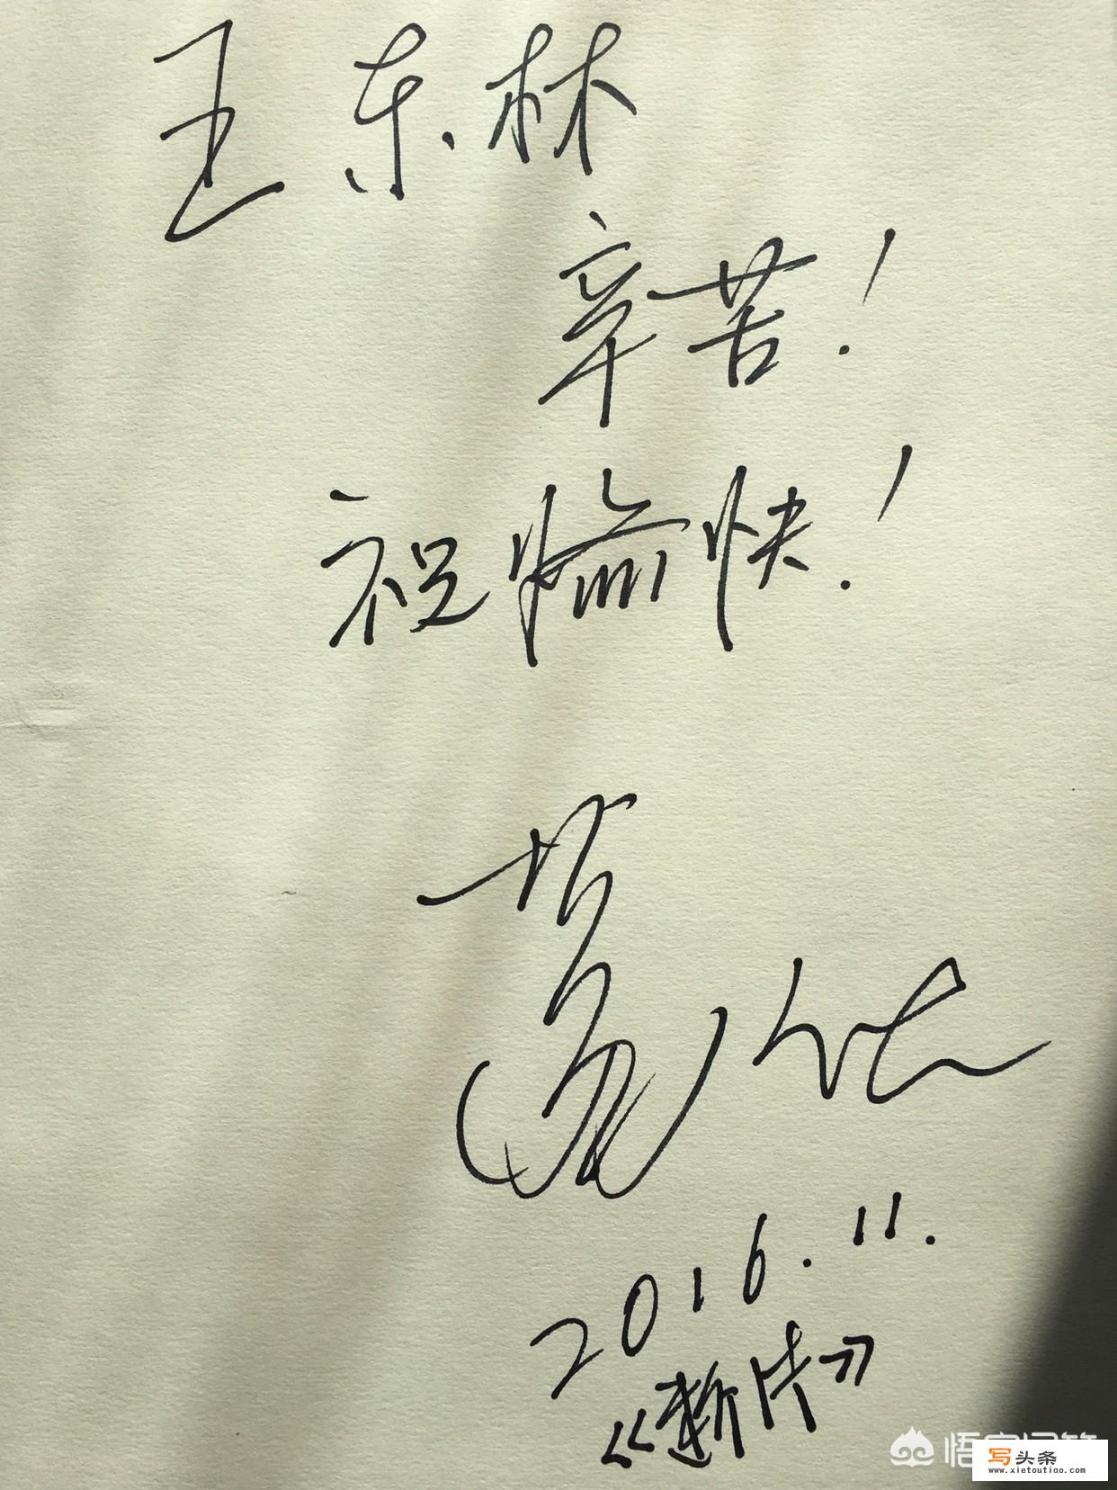 王东林
辛苦！
祝愉快！
葛优
2016.11.
《断片》
悟空问答
写头条
www.xietoutiao.com